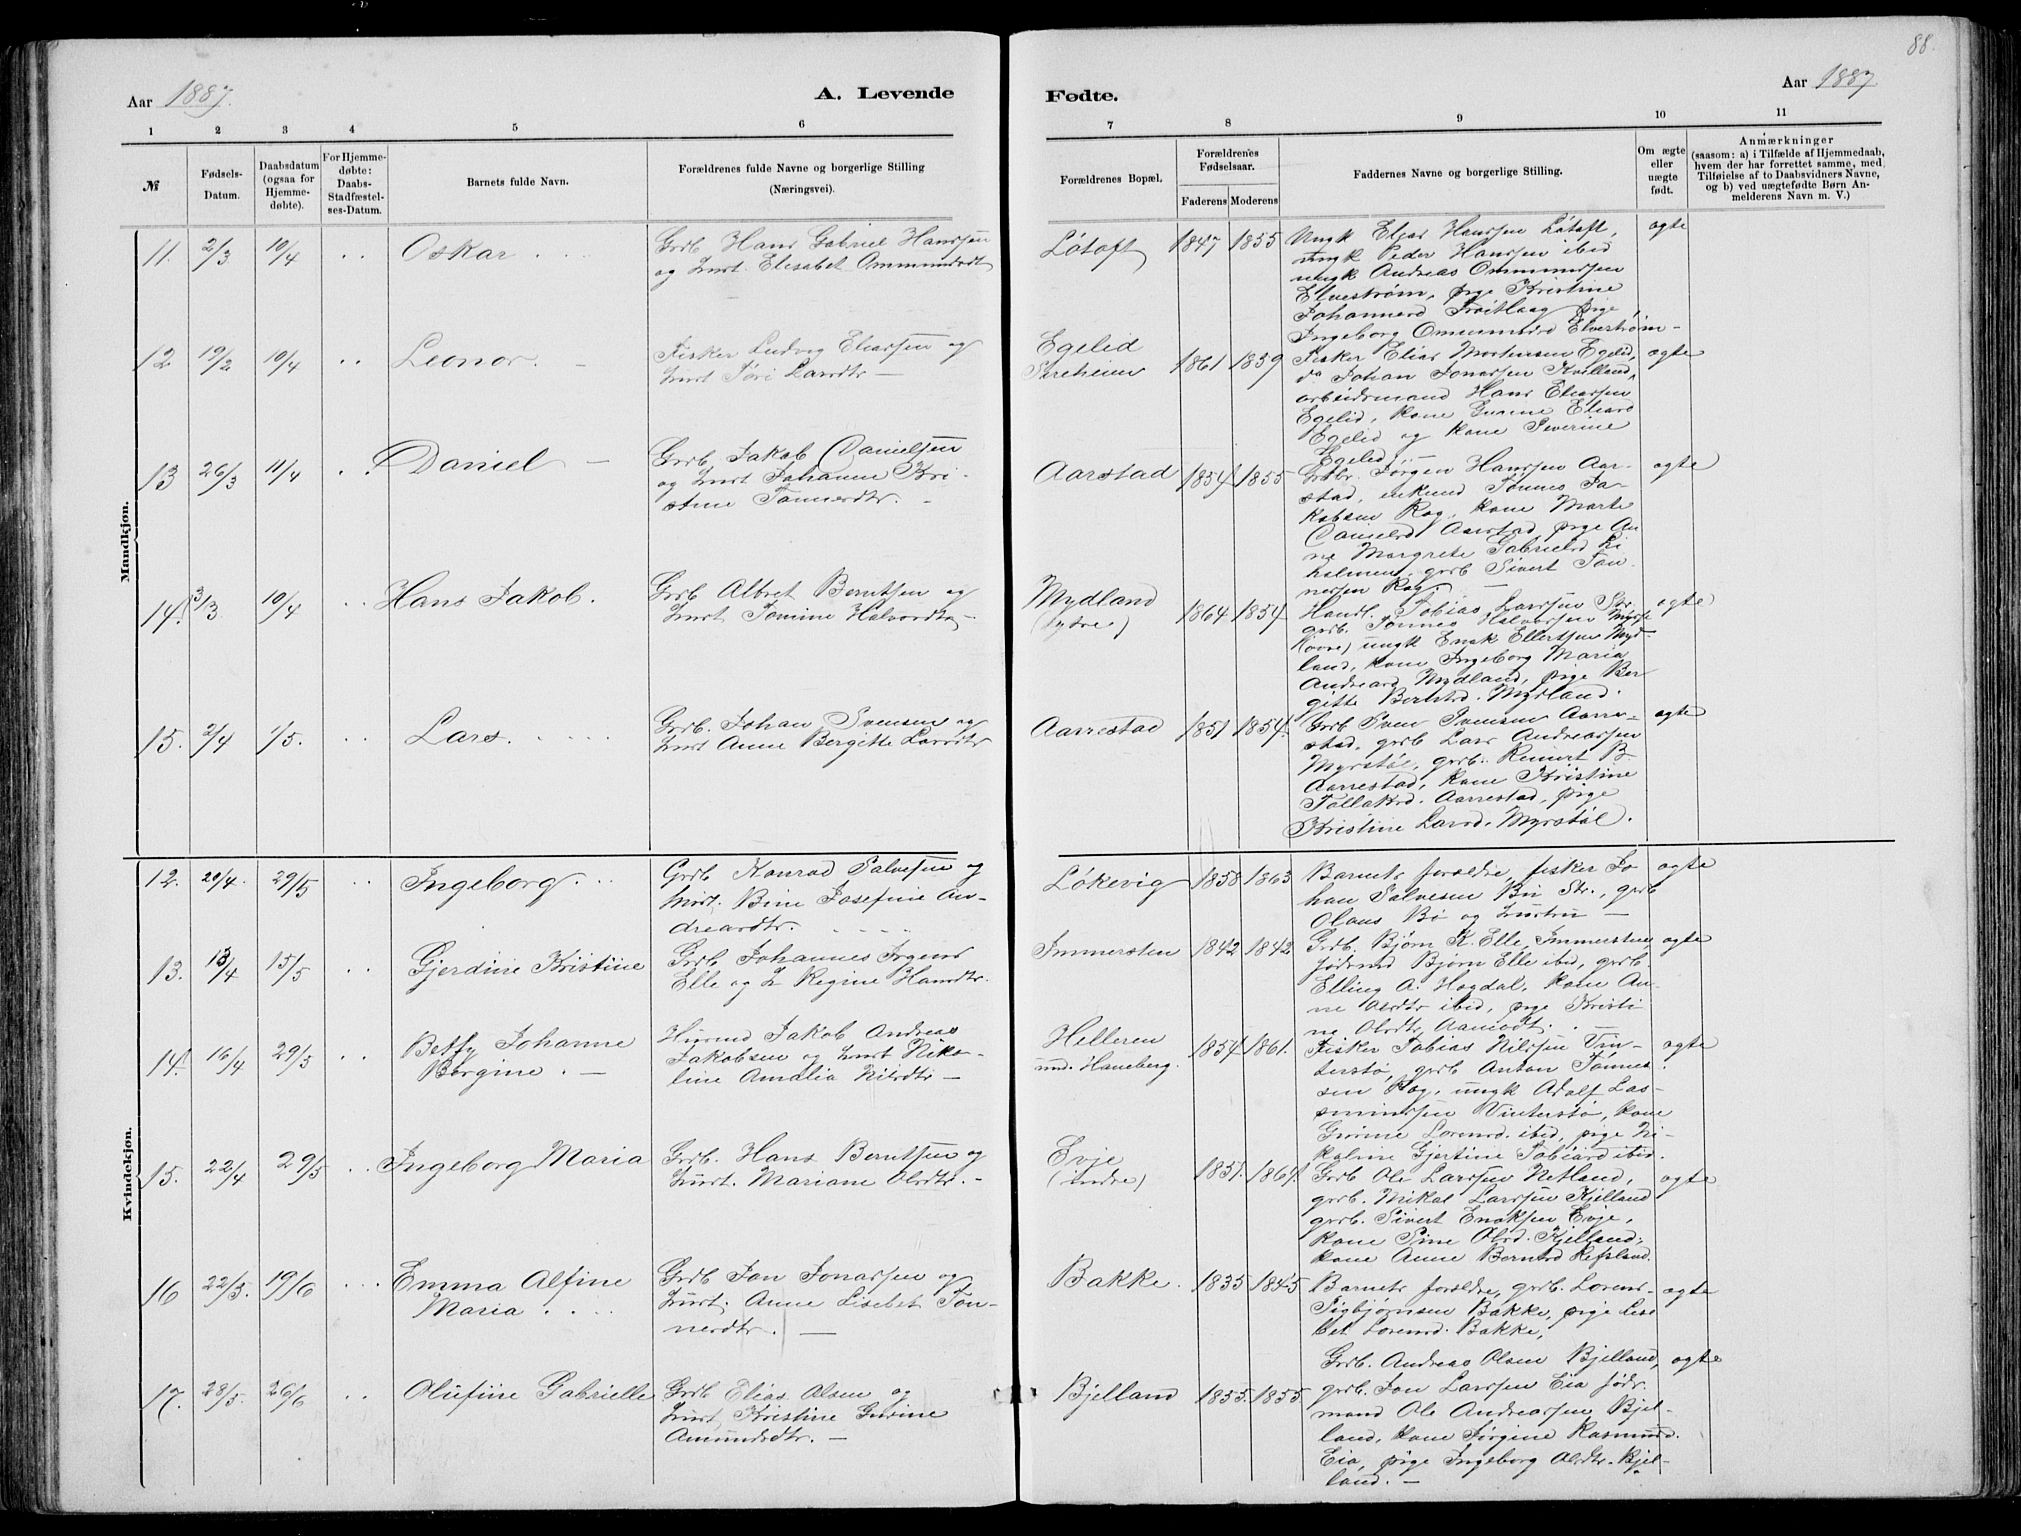 88.
Aar 1887.
A. Levende
Fødte.
Aar 1887
1 2 3 4 5 6
7 8 9 10 11
№
Fødsels-
Datum.
Daabsdatum
(ogsaa for
Hjemme-
døbte).
For Hjemme-
døbte:
Daabs-
Stadfæstel-
ses-Datum.
Barnets fulde Navn.
Forældrenes fulde Navne og borgerlige Stilling
(Næringsvei).
Forældrenes Bopæl.
Forældrenes
Fødselsaar.
Faderens Moderens
Faddernes Navne og borgerlige Stilling.
Om ægte
eller
uægte
født.
Anmærkninger
(saasom: a) i Tilfælde af Hjemmedaab,
hvem der har forrettet samme, med
Tilføielse af to Daabsvidners Navne,
og b) ved uægtefødte Børn An-
melderens Navn m. V.)
Mandkjøn.
11. 2/3 10/4 Oskar
Grdb Hans Gabriel Hanssen
og Hust. Elisabet Ommundsdt
Løtoft 1847 1855
Ungk Elias Hanssen Løtoft,
ungk Peder Hanssen ibid
ungk Andreas Ommundsen
Elvestrøm, pige Kristine
Johannesd Trøitlaag pige
Ingeborg Ommundsd Elvestrøm
ægte
12 19/2 10/4 Leonor.
Fisker Ludvig Eliassen og
Hust Siri Larsdtr
Egelid
Sireheien 1861 1859
Fisker Elias Mortensen Egelid,
do Johan Jonassen Kvelland,
arbeidsmand Hans Eliassen
Egelid, kone Gurine Eliasd
Egelid og kone Severine
Egelid.
ægte
13 26/3 11/4 Daniel
Grdb. Jakob Danielsen
og Hust Johanne Kri-
stine Tønnesdtr.
Aarstad 1854 1855
Grdbr. Jørgen Hanssen Aar-
stad, enkemd Tønnes Ja-
kobsen Røg, kone Marte
Danielsd Aarstad, pige An-
ne Margrete Gabrielsd Li-
holmen, grdb Sivert Tøn
nessen Røg.
ægte
14. 13/3 10/4 Hans Jakob.
Grdb Albret Berntsen og
Hust. Tomine Halvorsdtr
Mydland
(ydre) 1864 1854
Handl. Tobias Larssen Str.
grdb. Tønnes Halvorsen Mysse
(øvre) ungk Enok Ellertsen Myd-
land, kone Ingeborg Maria
Andreasd Mydland, pige Ber
gitte Berntsd. Mydland.
ægte
15. 2/4 1/5. Lars.
Grdb. Johan Svensen og
Hust Anne Bergitte Larsdtr
Aarrestad 1851 1854.
Grdb Sven Svensen Aarre-
stad. grdb Lars Andreassen
Myrstøl, grdb. Reinert B.
Aarrestad, kone Kristine
Tollaksd. Aarrestad, pige
Kristine Larsd. Myrstøl.
ægte
Kvindekjøn.
12. 20/4. 29/5 Ingeborg.
Grdb Konrad Salvesen og
Hust. Bine Josefine An-
dreasdtr.
Løkevig 1858 1863
Barnets forældre, fisker Jo
han Salvesen Bø Str., grdb
Olaus Bø og hustru
ægte
13. 13/4 15/5 Gjerdine Kristine
Grdb Johannes Irgens
Elle og H Regine Hansdtr.
Immersten 1842 1842
Grdb. Bjørn K. Elle, Immersten,
føderaad Bjørn Elle ibid, grdb.
Elling A. Hogdal, kone An-
ne Olsdtr ibid, pige Kristi
ne Olsdtr Aamodt.
ægte
14. 16/4 29/5 Betsy Johanne
Borgine.
Husmd Jakob Andreas
Jakobsen og Hust Niko-
line Amalia Nilsdtr
Helleren
und. Haneberg. 1854 1861.
Fisker Tobias Nilssen Vin-
terstø, grdb Anton Tønnes-
sen Røg, ungk Adolf Las-
minssen Vinterstø, kone
Gurine Lorensd. ibid, pige Ni-
koline Gjertine Tobiasd ibid.
ægte
15. 22/4 29/5 Ingeborg Maria
Grdb. Hans Berntsen og
Hust. Mariane Olsdtr.
Evje
(indre) 1851. 1861.
Grdb Ole Larssen Netland,
grdb. Mikal Larssen Kjelland
grdb. Sivert Enoksen Evje,
kone Sine Olsd. Kjelland,
kone Anne Berntsd Refsland.
ægte
16 22/5. 19/6 Emma Alfine
Maria
Grdb Jon Jonassen og
Hust. Anne Lisebet Tøn-
nesdtr.
Bakke. 1835 1845
Barnets forældre, grdb. Lorens
Sigbjørnsen Bakke, pige Lise
bet Lorensd. Bakke,
ægte
17. 28/5. 26/6 Olufine Gabrielle
Grdb Elias Olsen og
Hust Kristine Gurine
Amundsdtr.
Bjelland 1855. 1855.
Grdb. Andreas Olsen Bjelland,
grdb. Jon Larssen Eia, føder.
mand Ole Andreassen Bjel-
land, kone Jørgine Rasmusd.
Eia, pige Ingeborg Olsdtr. Bjel-
land.
ægte